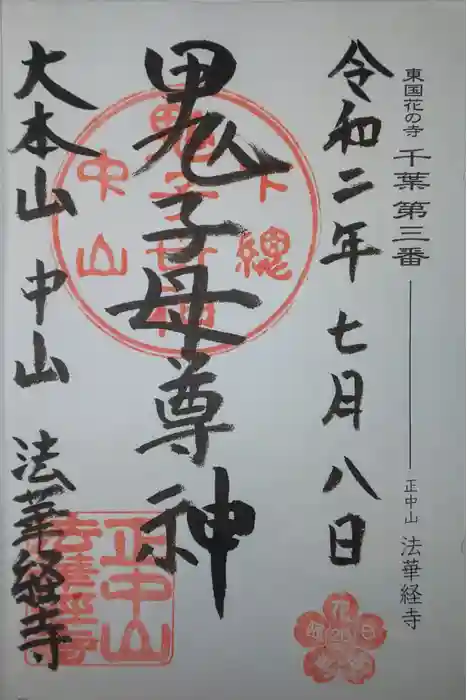 東国花の寺 千葉 第三番 正中山 法華経寺
令和二年七月八日
鬼子母尊神
大本山 中山 法華経寺
下總
中山
正中山
法華経寺